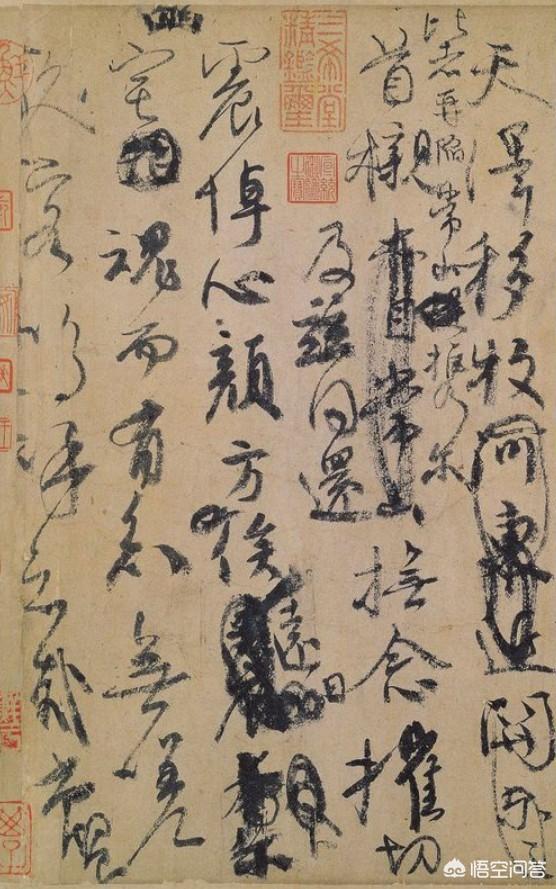 天澤移牧河東近關
比者再陷常山攜尔
首櫬亦自常山撫念摧切
及茲同還
三希堂精鑑璽
宜子孫
震悼心顏方俟遠日
宅魂而有知無嗟
久客嗚呼哀哉尚饗
悟空问答